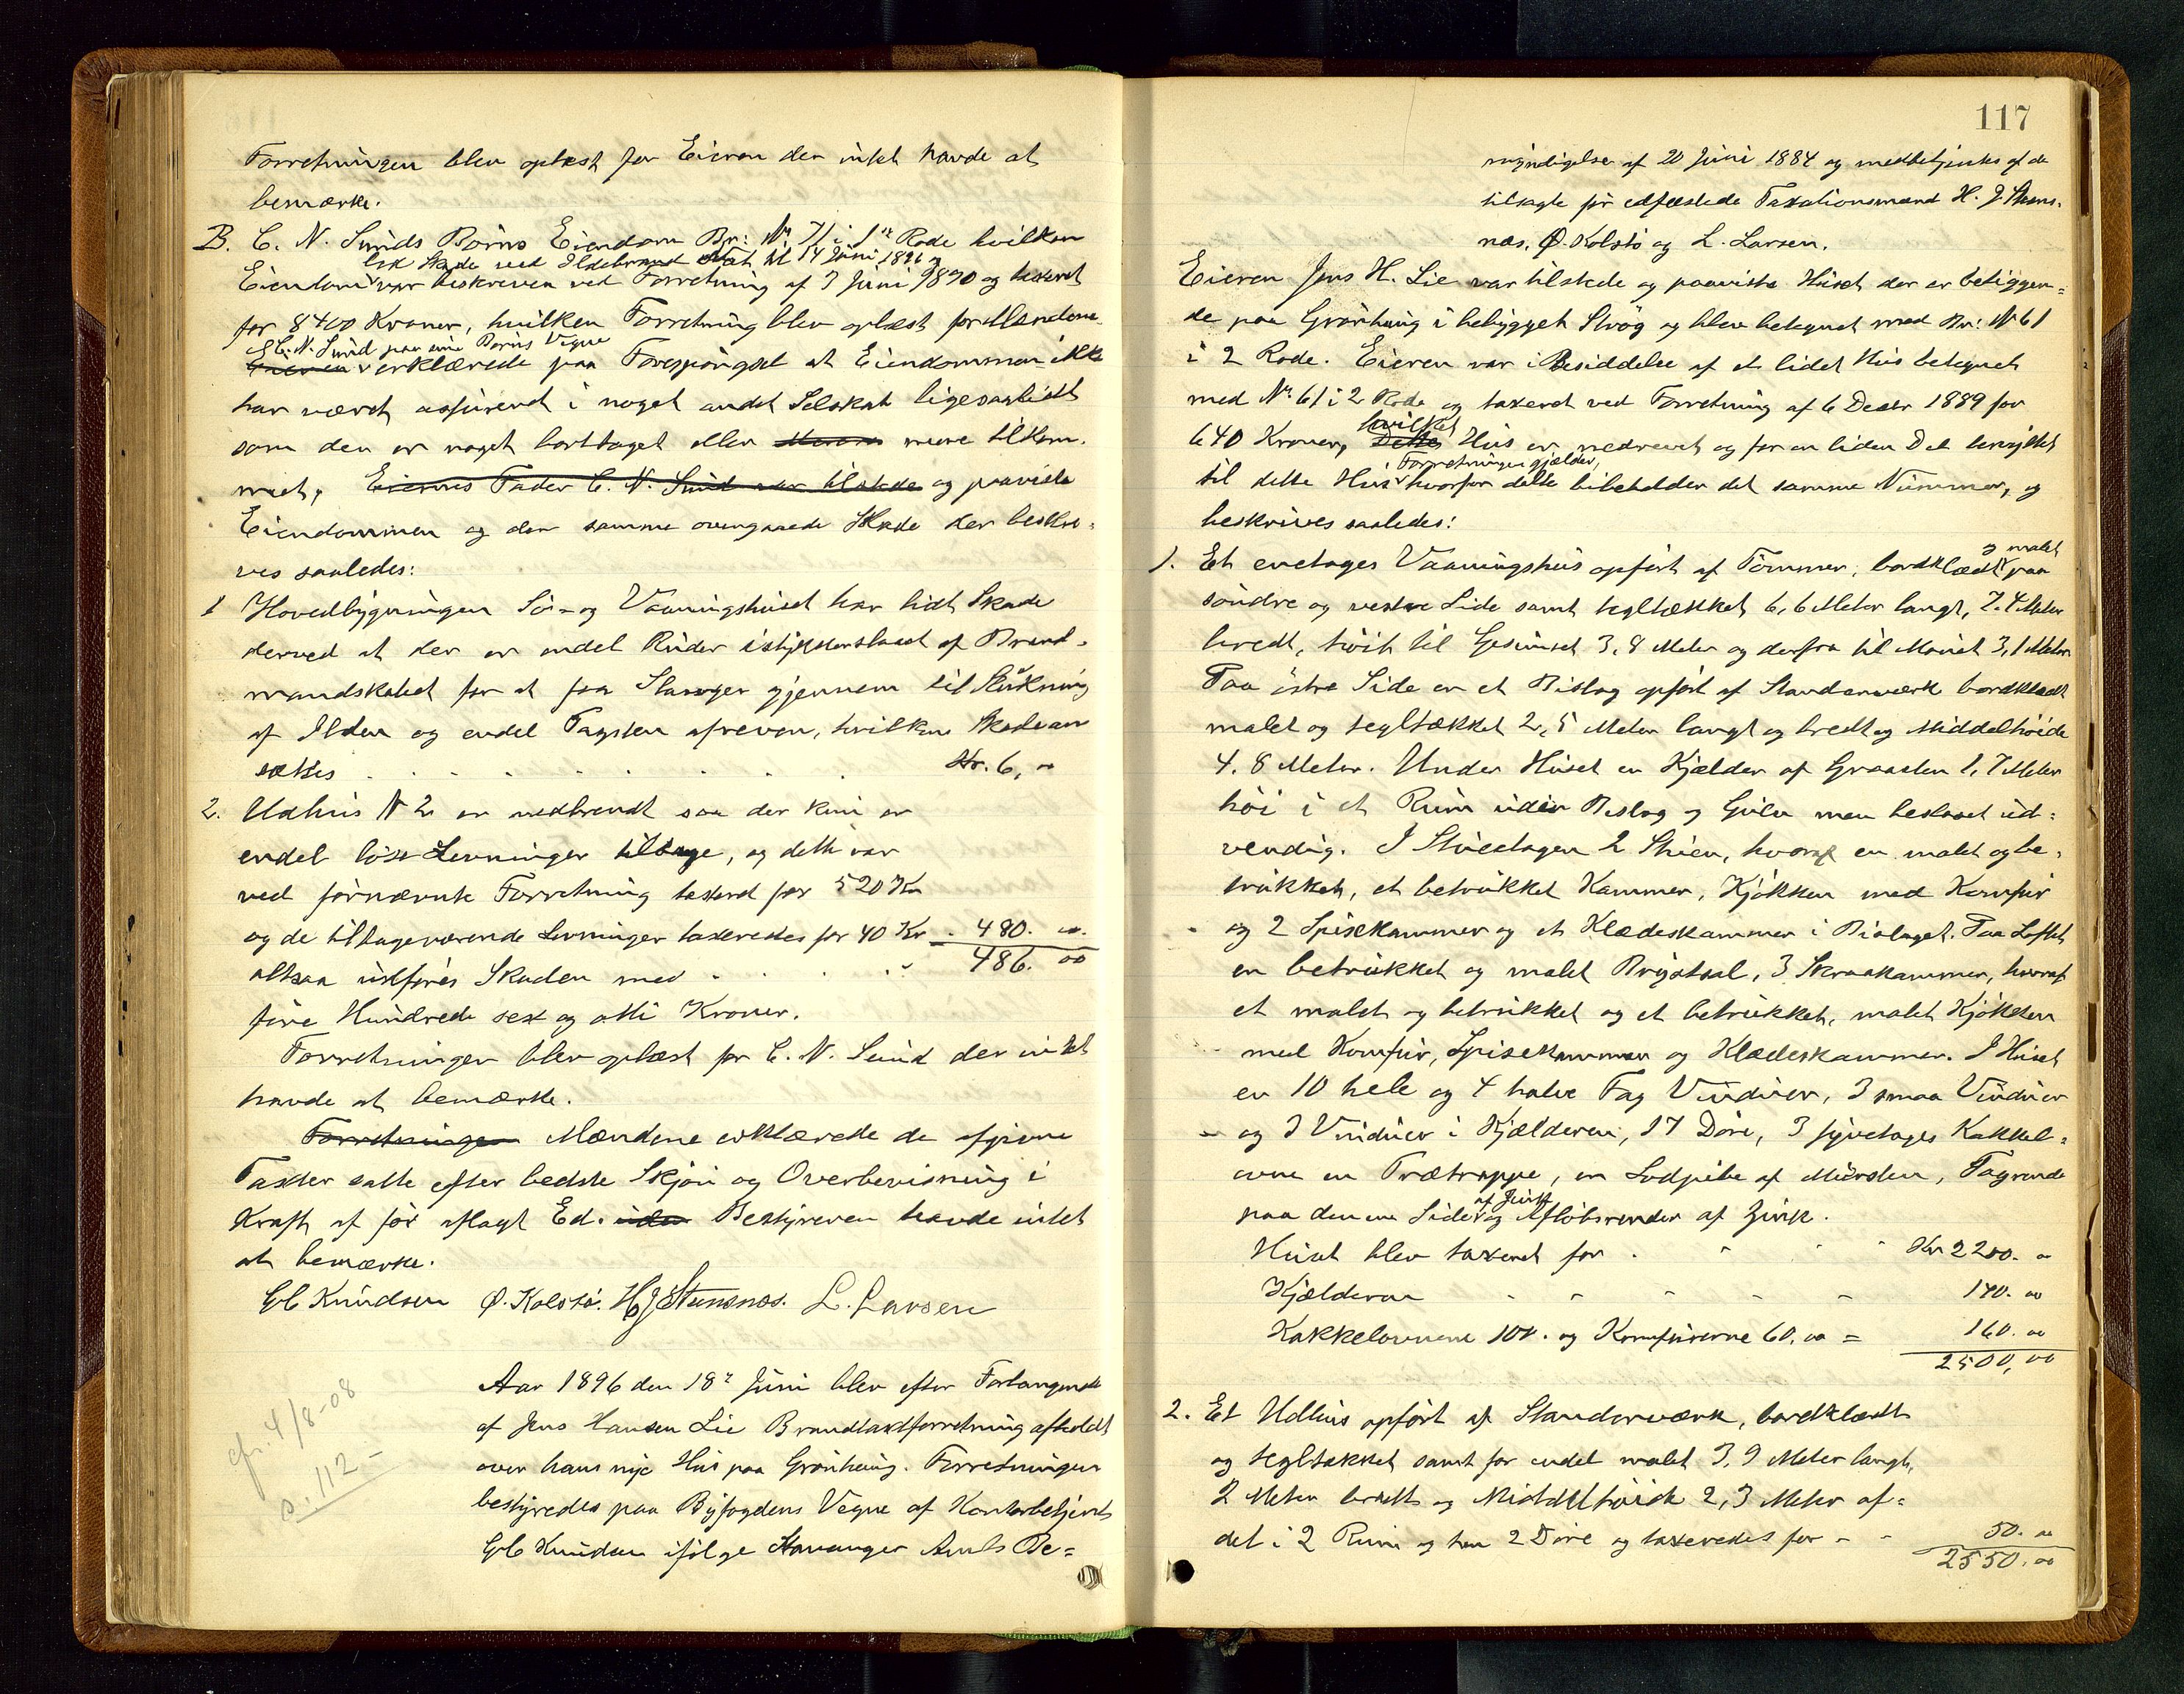 Forretningen blev oplæst for Eieren der intet havde at
bemærke.
B. C. N. Sunds Børns Eiendom Br: No 71 i 1ste Rode hvilken
leed Skade ved Ildebrand Nat til 14 Juni 1896 og
Eiendom var beskreven ved Forretning af 3 Juni 1890 og taxeret
for 8400 Kroner, hvilken Forretning blev oplæst for Mændene.
C. N. Sund paa sine Børns Vegne
Eieren erklærede paa Forespørgsel at Eiendommen ikke
har været assureret i noget andet Selskab ligesaalidt
som den er noget borttaget eller mere tilkom-
met, Eiernes Fader C. N. Sund var tilstede og paaviste
Eiendommen og den samme overgaaede Skade der beskri-
ves saaledes:
1 Hovedbygningen Sø- og Vaaningshuset har lidt Skade
derved at der er endel Ruder istykkerslaaet af Brand-
mandskabet for at faa Slanger gjennem til Slukning
af Ilden og endel Tagsten afreven, hvilken Skade an
sættes . . . . . . . Kr. 6, 00
2. Udhus N 2 er nedbrendt saa der kun er
endel løse Levninger tilbage, og dette var
ved førnævnte Forretning taxeret for 520 Kr
og de tilbageværende Levninger taxeredes for 40 Kr - 480. 00.
altsaa udføres Skaden med - . . . 486. 00
fire Hundrede sex og otti Kroner.
Forretningen blev oplæst for C. N. Sund der intet
havde at bemærke.
Forretningen Mændene erklærede de afgivne
Taxter satte efter bedste Skjøn og Overbevisning i
Kraft af før aflagt Ed. uden Bestyreren havde intet
at bemærke.
Ø. Kolstø. H J Stensnæs. L. Larsen
Aar 1896 den 18de Juni blev efter Forlangende
af Jens Hansen Lie Brandtaxtforretning afholdt
over hans nye Hus paa Grønhaug. Forretningen
bestyredes paa Byfogdens Vegne af Kontorbetjent
Knudsen ifølge Stavanger Amts Be=
cfr. 4/8-08
s. 112 -
117
myndigelse af 20 Juni 1884 og medbetjentes af de
tilsagte før edfæstede Taxationsmænd H. J Stens-
næs. Ø. Kolstø og L. Larsen.
Eieren Jens H. Lie var tilstede og paaviste Huset der er beliggen=
de paa Grønhaug i bebygget Strøg og blev betegnet med Br: N 61
i 2 Rode. Eieren var i Besiddelse af et lidet Hus betegnet
med No 61 i 2 Rode og taxeret ved Forretning af 6 Decbr 1889 for
hvilket
640 Kroner, Dette Hus er nedrevet og for en liden Del benyttet
Forretningen gjælder,
til dette Hus hvorfor dette bibeholder det samme Nummer, og
beskrives saaledes:
og malet
1. Et enetages Vaaningshus opført af Tømmer, bordklædt paa
søndre og vestre Side samt tegltækket 6,6 Meter langt, 7.4 Meter
bredt, høit til Gesimset 3,8 Meter og derfra til Mønet 3,1 Meter
Paa østre Side er et Bislag opført af Standerværk bordklædt
malet og tegltækket 2,5 Meter langt og bredt og Middelhøide
4.8 Meter. Under Huset en Kjælder af Graasten 1,7 Meter
høi i et Rum uden Beslag og Gulv men beslaaet ud=
vendig. I Stueetagen 2 Stuer, hvoraf en malet og be-
trukket, et betrukket Kammer, Kjøkken med Komfur
og 2 Spisekammer og et Klædeskammer i Bislaget. Paa Loftet
en betrukket og malet Brystsal, 3 Skraakammer, hvoraf
et malet og betrukket og et betrukket, malet Kjøkken
med Komfur, Spisekammer og Klædeskammer. I Huset
er 10 hele og 4 halve Fag Vinduer, 3 smaa Vinduer
og 3 Vinduer i Kjælderen, 17 Døre, 3 fyretages Kakkel=
ovne en Trætrappe, en Lodpibe af Mursten, Tagrende
af Zink
paa den ene Side og Afløbsrender af Zink.
Huset blev taxeret for . - . - Kr 2200. 00
Kjælderen - - - - - 140. 00
Kakkelovnene 100. og Komfurerne 60. 00 = 160. 00
2500, 00
2. Et Udhus opført af Standerværk, bordklædt
og tegltækket samt for endel malet 3,9 Meter langt,
2 Meter bredt og Middelhøide 2,3 Meter af=
delt i 2 Rum og har 2 Døre og taxeredes for - - 50. 00
2550. 00